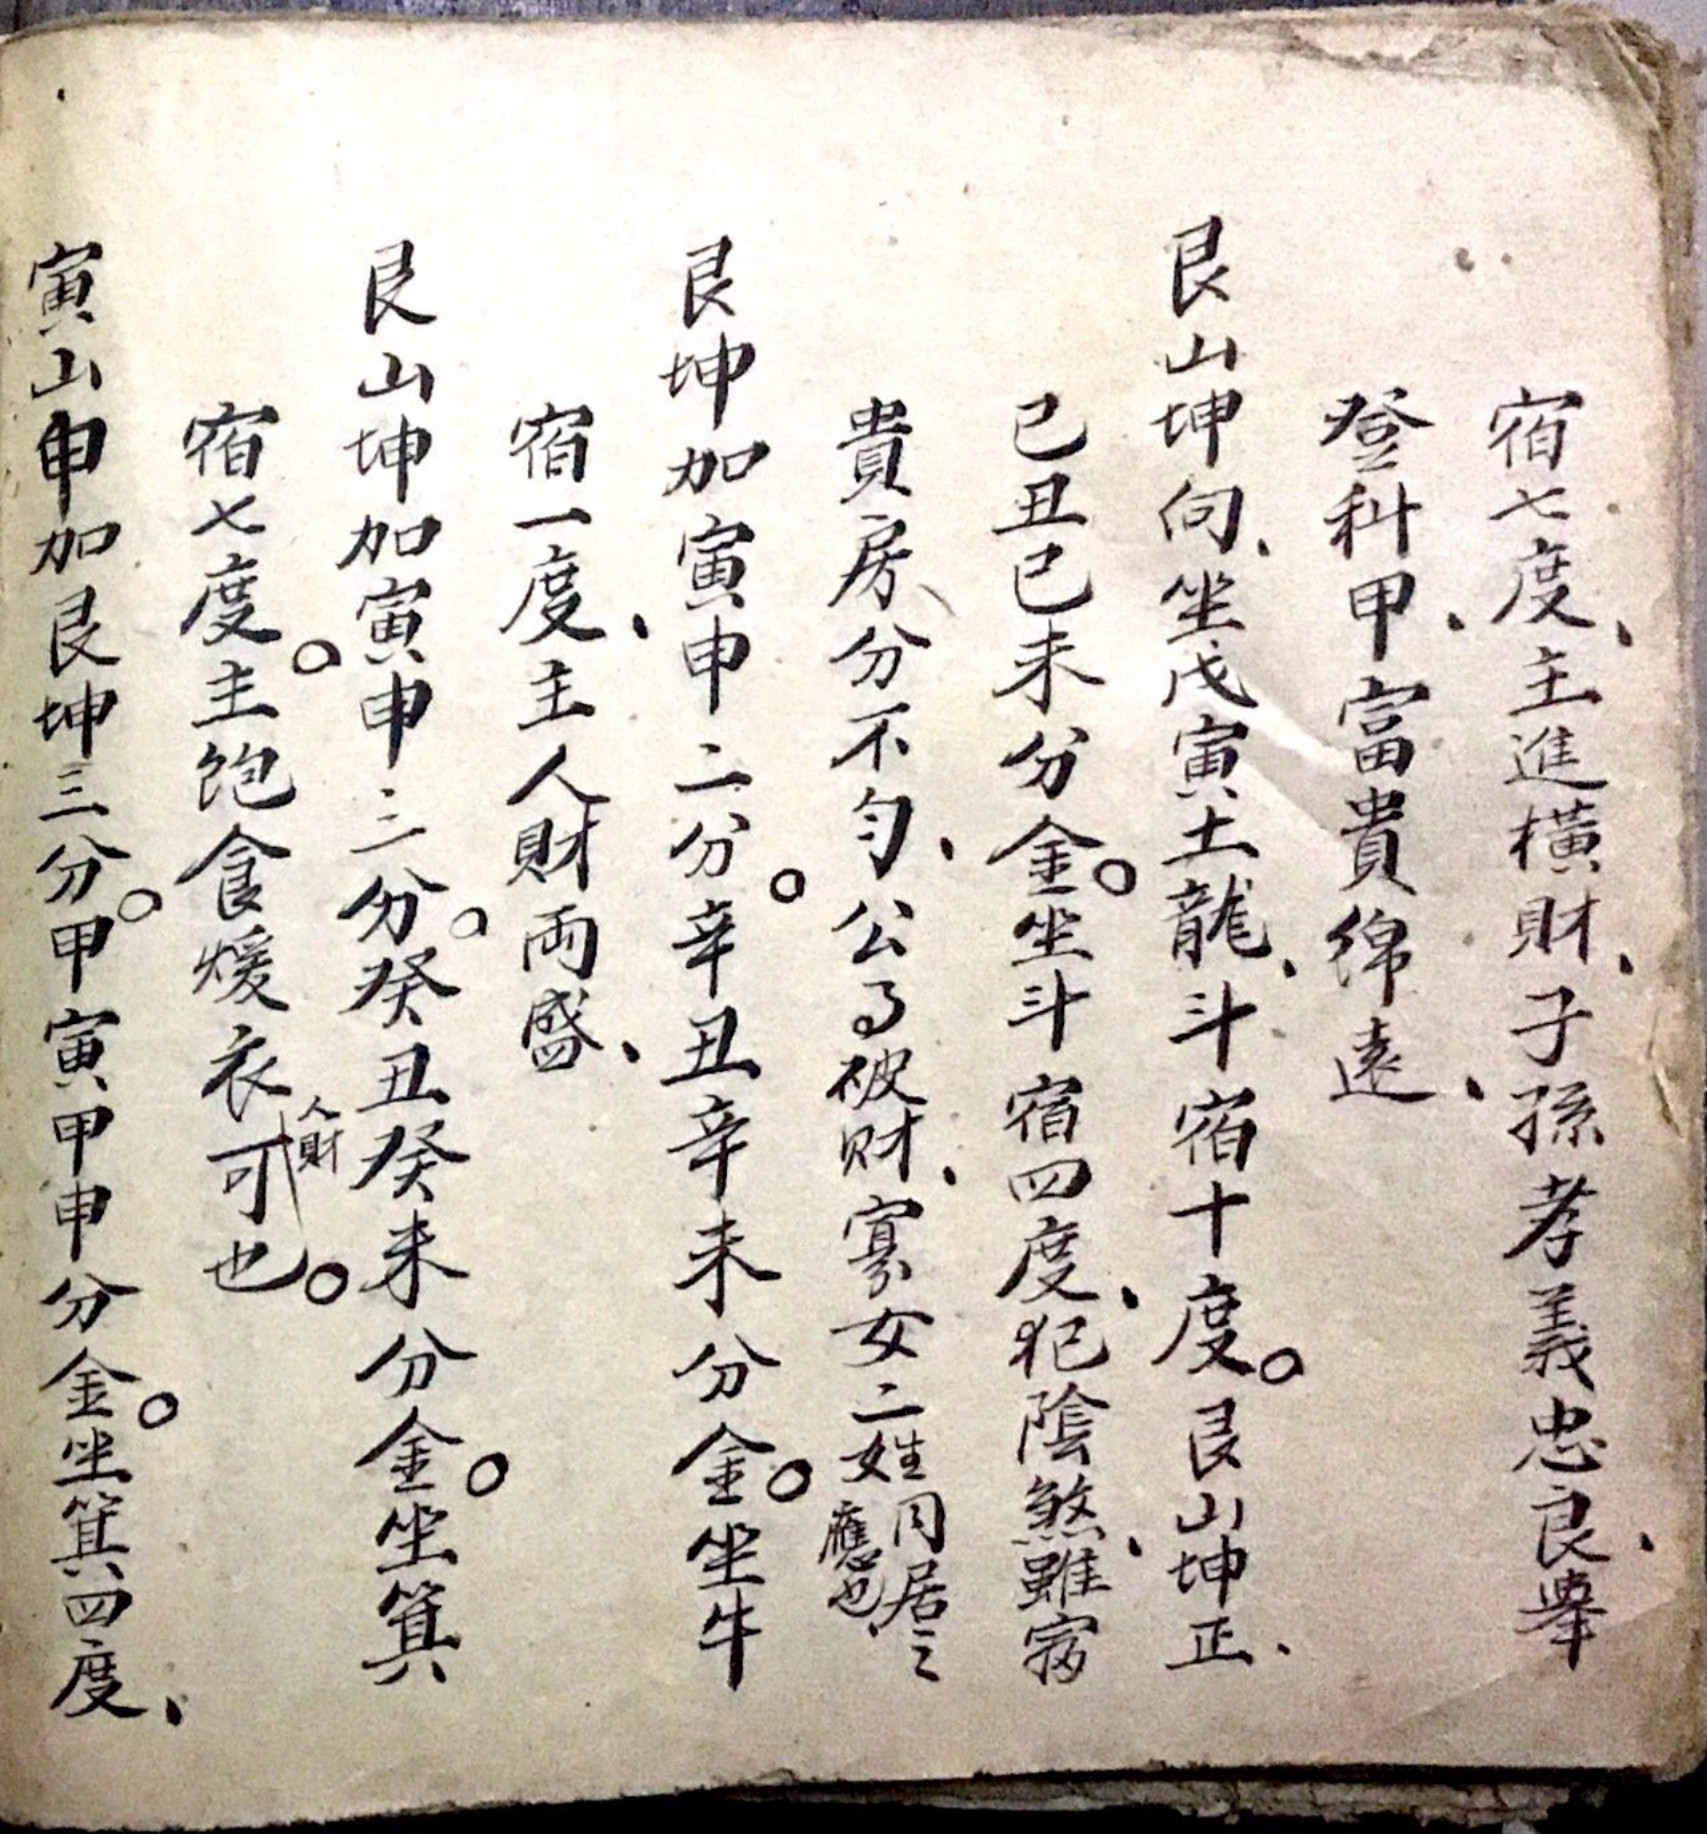 宿七度、主進横財、子孫孝義忠良、舉
登科甲、富貴綿遠、
艮山坤向、坐戊寅土龍、斗宿十度。艮山坤正、
己丑己未分金。坐斗宿四度、犯陰煞、雖
貴房分不勻、公𠃔破財、寡女二姓同居之應也、
艮坤加寅申二分。辛丑辛未分金。坐牛
宿一度、主人財両盛、
艮山坤加寅申三分。癸丑癸未分金。坐箕
宿七度。主飽食煖衣人財可也。
寅山申加艮坤三分。甲寅甲申分金。坐箕四度、